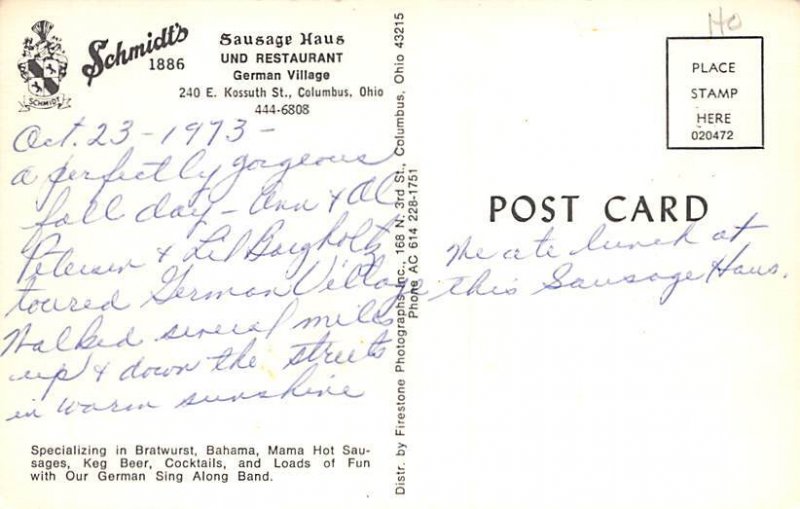 Schmidt's
1886
SCHMIDT
Sausage Haus
UND RESTAURANT
German Village
240 E. Kossuth St., Columbus, Ohio
444-6808
Oct. 23 - 1973 -
a perfectly gorgeous
fall day - Ann & Al
Petersen & Lil Borgholtz
toured German Village
Walked several miles
up & down the streets
in warm sunshine
Specializing in Bratwurst, Bahama, Mama Hot Sau-
sages, Keg Beer, Cocktails, and Loads of Fun
with Our German Sing Along Band.
Distr. by Firestone Photographs Inc., 168 N. 3rd St., Columbus, Ohio 43215
Phone AC 614 228-1751
Ho
PLACE
STAMP
HERE
020472
POST CARD
We ate lunch at
this Sausage Haus.